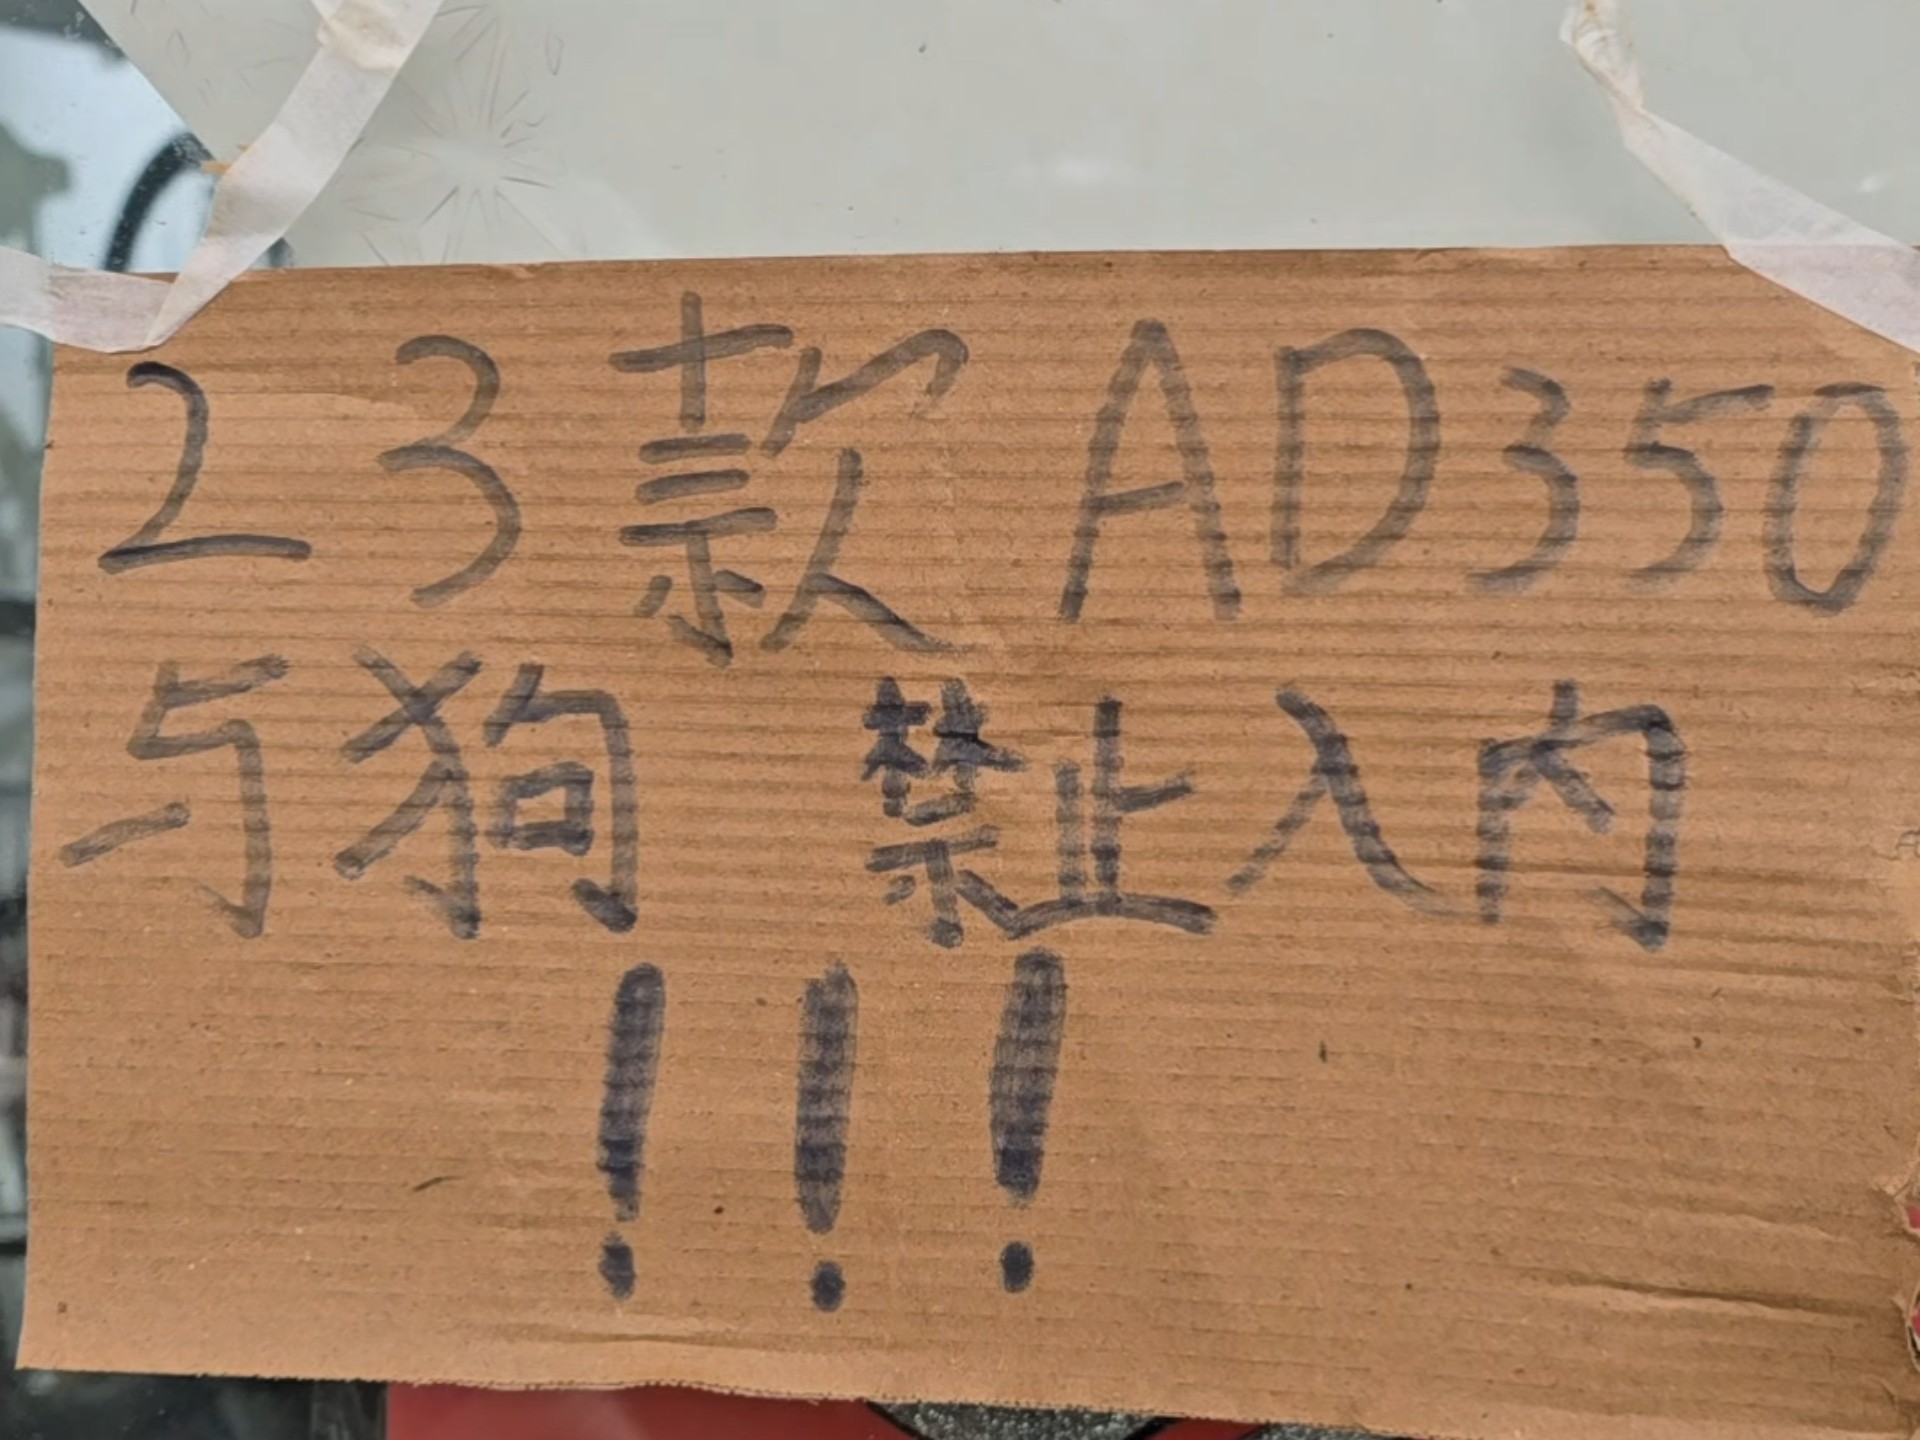 23款 AD350
与狗 禁止入内
!!!